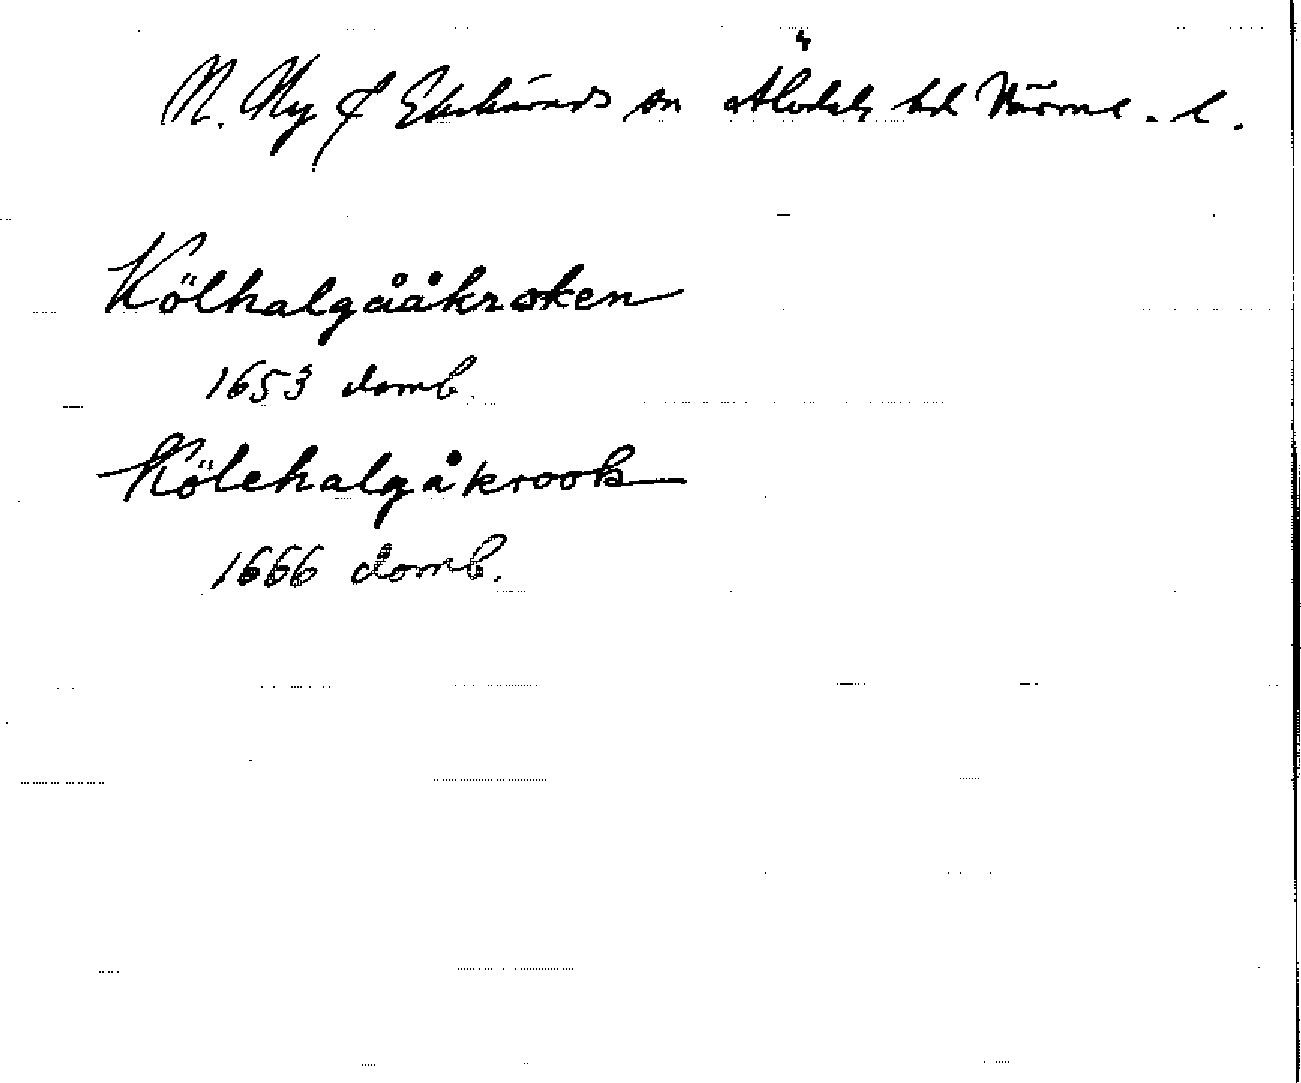 N. Ny f Ekshärads sn Älvdals hd Värml. l.
Kölhalgååkroken
1653 domb.
Kölehalgåkrook
1666 domb.